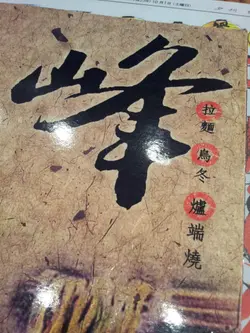 峰
拉麵
鳥冬
爐端燒